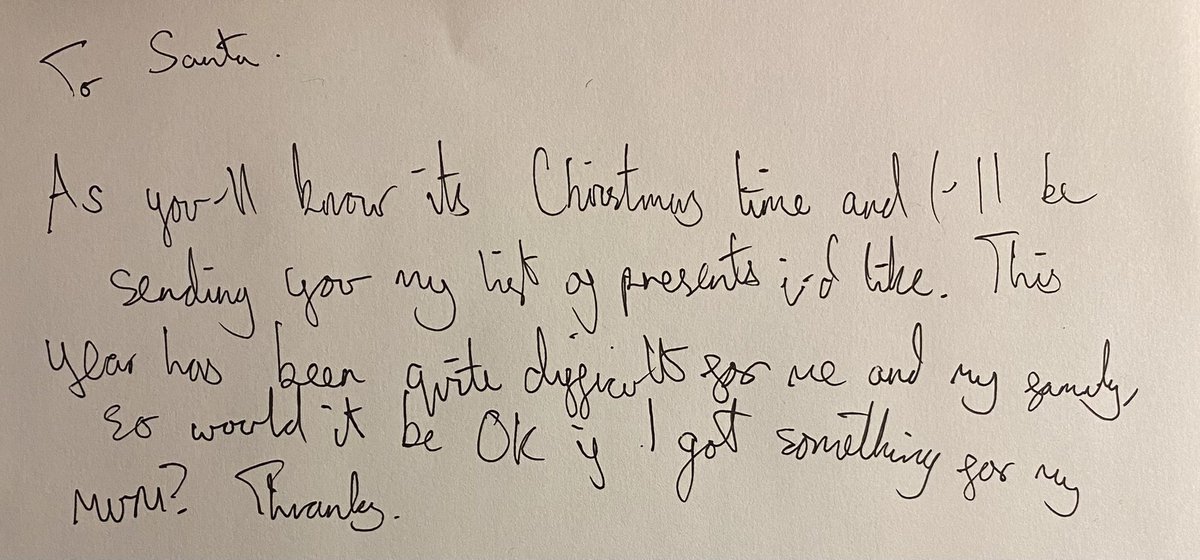 To Santa.
As you'll know its Christmas time and I'll be
sending you my list of presents i'd like. This
year has been quite difficult for me and my family,
so would it be OK if I got something for my
mum? Thanks.